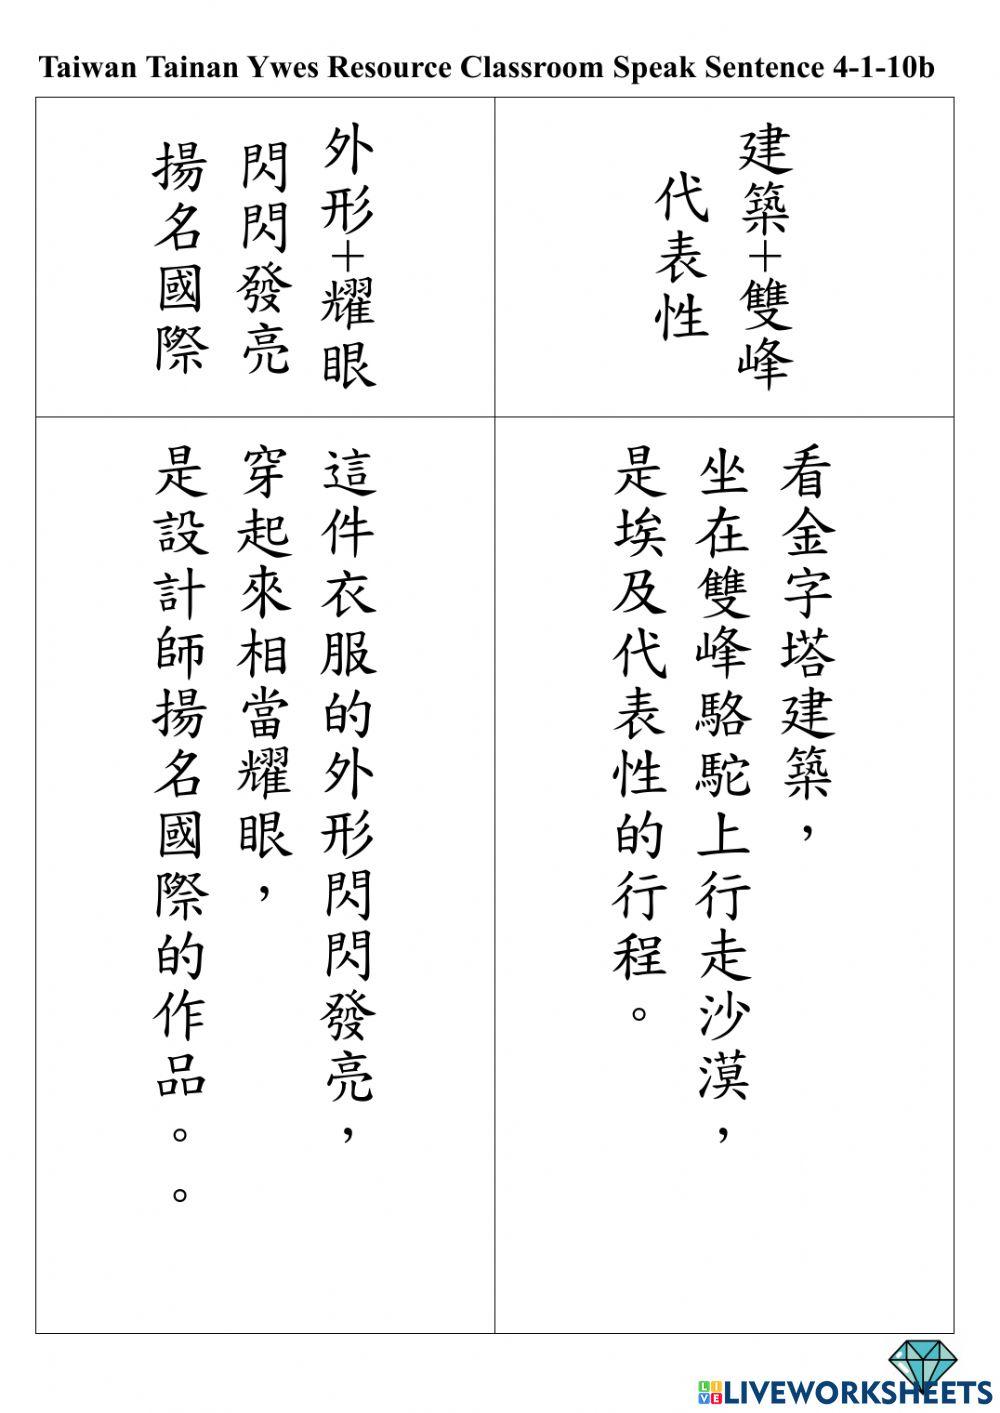 Taiwan Tainan Ywes Resource Classroom Speak Sentence 4-1-10b
建築+雙峰
代表性
外形+耀眼
閃閃發亮
揚名國際
看金字塔建築，
坐在雙峰駱駝上行走沙漠，
是埃及代表性的行程。
這件衣服的外形閃閃發亮，
穿起來相當耀眼，
是設計師揚名國際的作品。。
LIVE LIVEWORKSHEETS